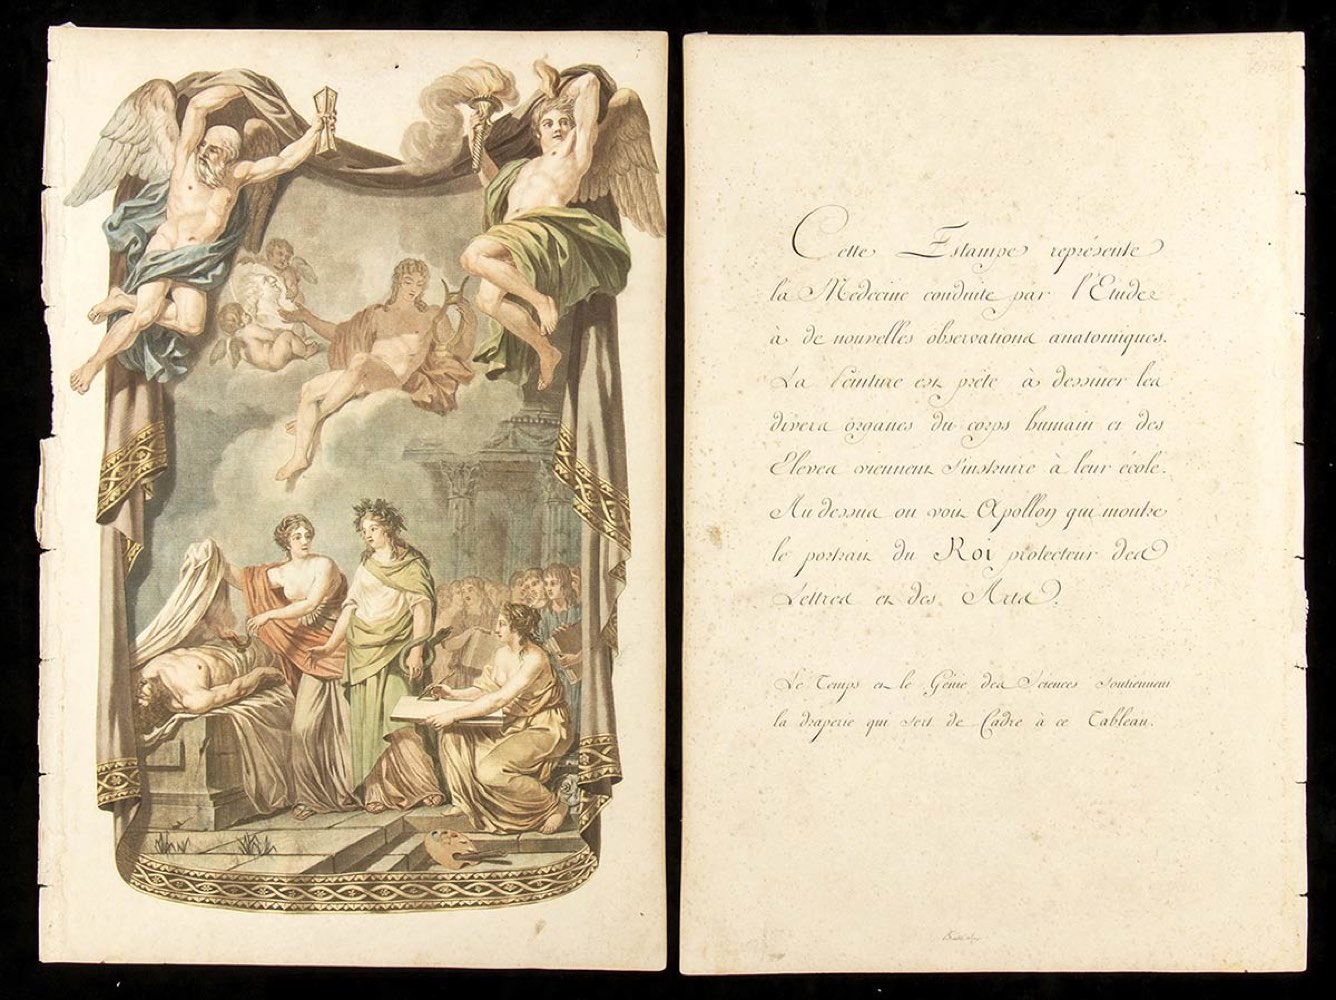 Cette Estampe représente
la Medecine conduite par l'Etude
à de nouvelles observations anatomiques.
La Peinture est prête à dessiner les
divers organes du corps humain et des
Eleves viennent s'instruire à leur école.
Au dessus on voit Apollon qui montre
le portrait du Roi protecteur des
Lettres et des Arts.
Le Temps et le Génie des Sciences soutiennent
la draperie qui sert de Cadre à ce Tableau.